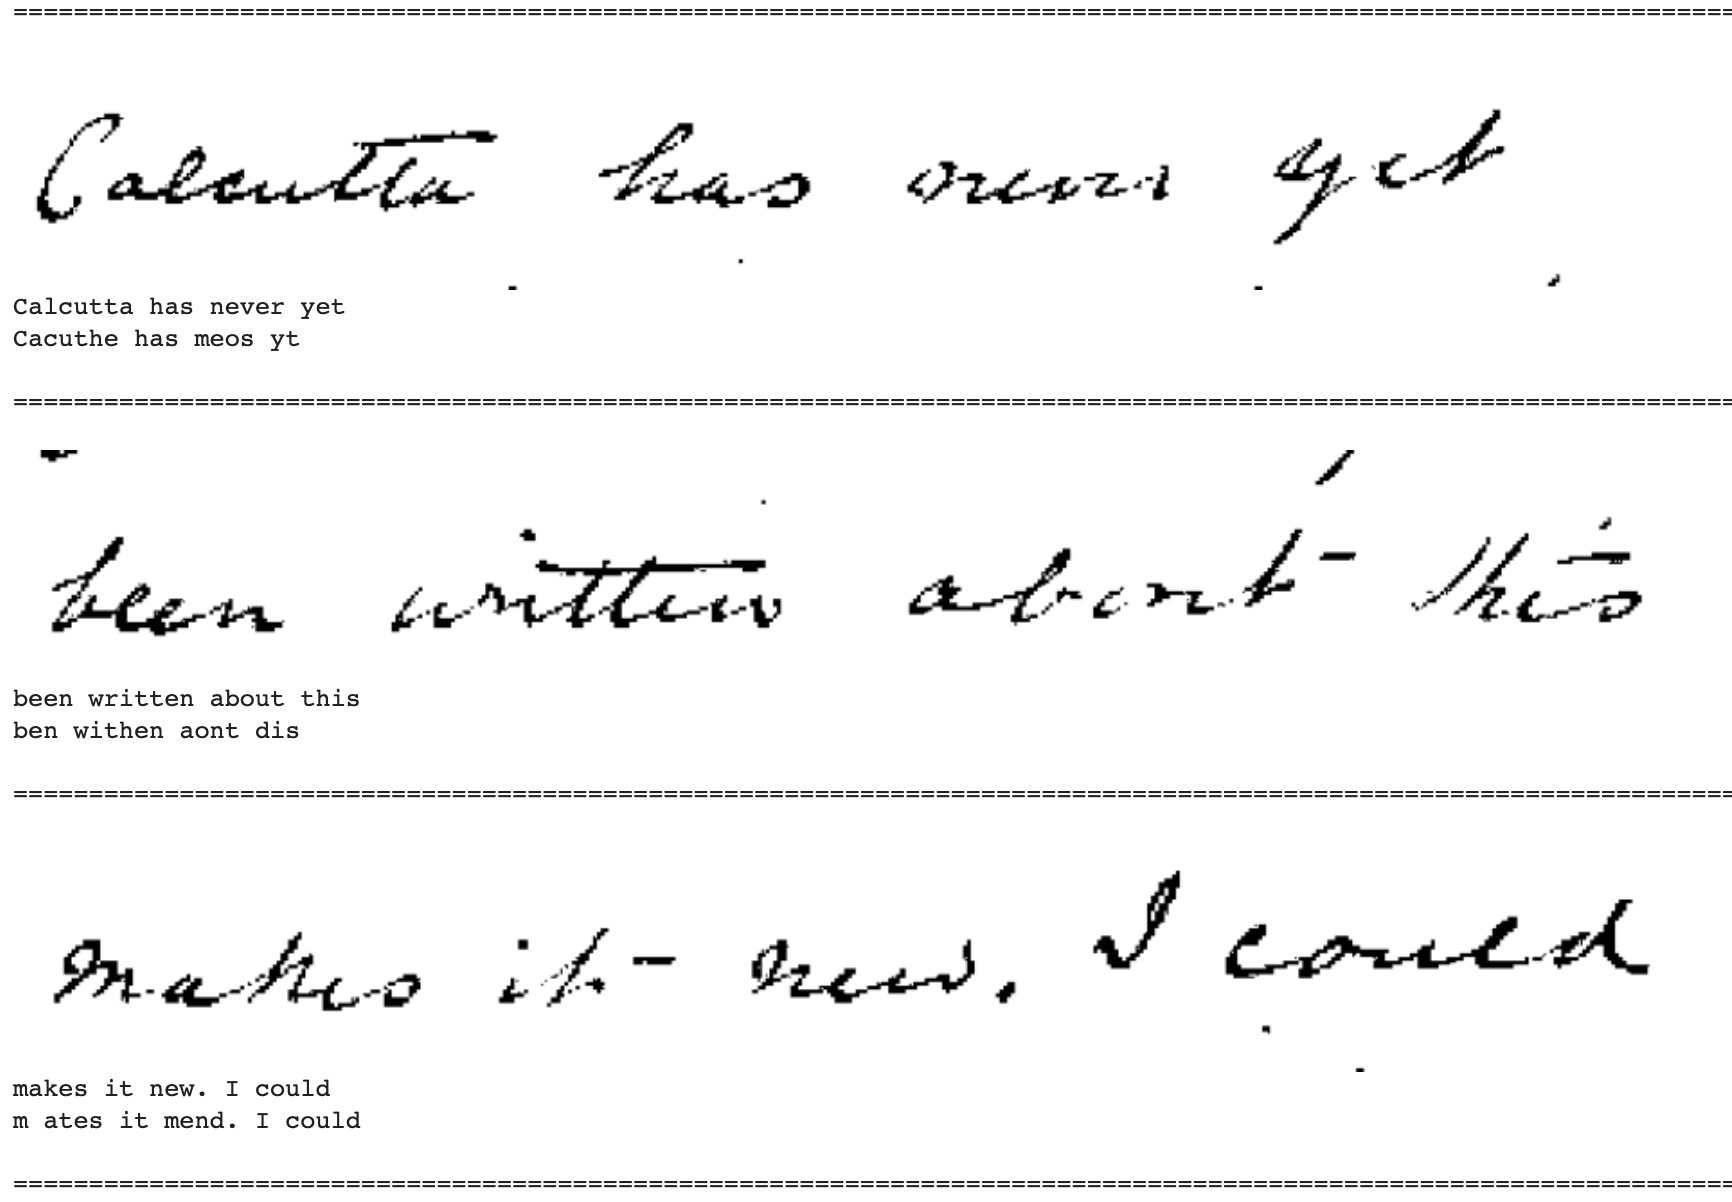 Calcutta has never yet
Calcutta has never yet
Cacuthe has meos yt
been written about this
been written about this
ben withen aont dis
makes it new. I could
makes it new. I could
m ates it mend. I could